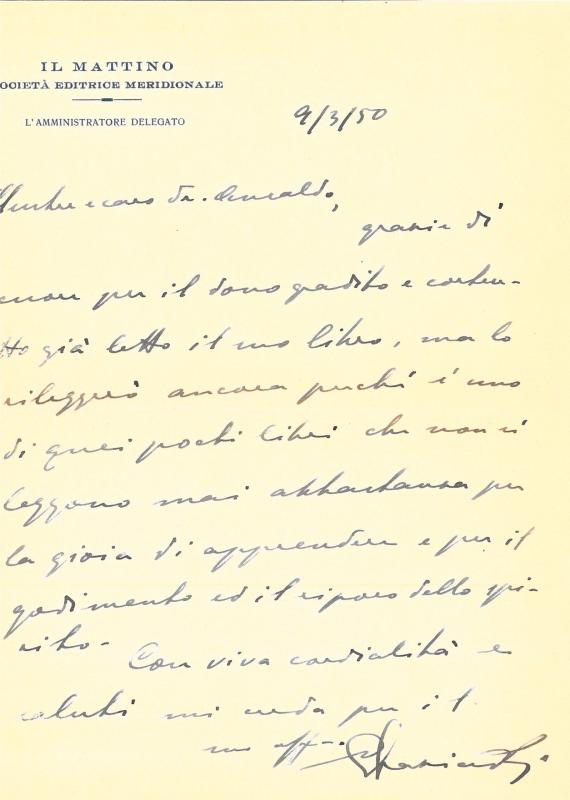 IL MATTINO
OCIETÀ EDITRICE MERIDIONALE
L'AMMINISTRATORE DELEGATO
9/3/50
llustre e caro Dr.
grazie di
cuore per il dono gradito e corten-
tto già letto il suo libro, ma lo
rileggerò ancora perché è uno
di quei pochi libri che non si
leggono mai abbastanza per
la gioia di apprendere e per il
godimento ed il riposo dello spi-
rito-
Con viva cordialità e
saluti mi creda per il
suo aff.